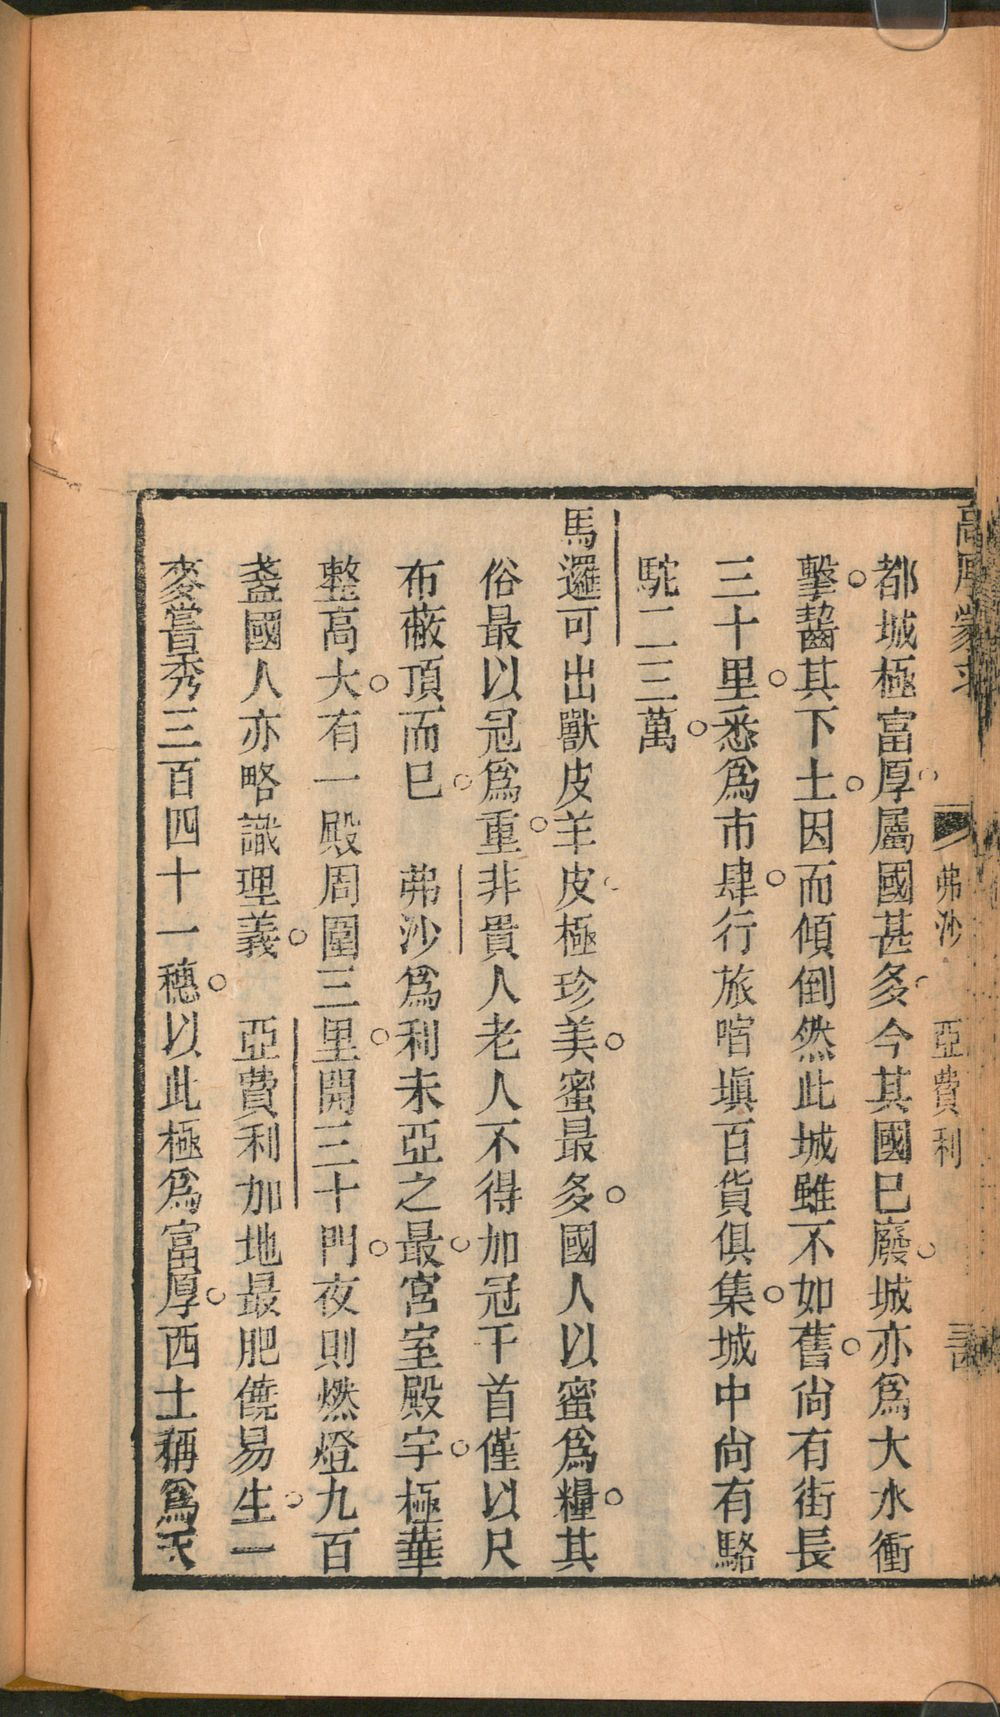 高厚蒙求
弗沙　亞費利
都城極富厚屬國甚多今其國已廢城亦爲大水衝
擊齧其下土因而傾倒然此城雖不如舊尚有街長
三十里悉爲市肆行旅喧塡百貨俱集城中尚有駱
駝二三萬
馬邏可出獸皮羊皮極珍美蜜最多國人以蜜爲糧其
俗最以冠爲重非貴人老人不得加冠于首僅以尺
布蔽頂而已　弗沙爲利未亞之最宮室殿宇極華
整高大有一殿周圍三里開三十門夜則燃燈九百
盞國人亦略識理義　亞費利加地最肥饒易生一
麥嘗秀三百四十一穗以此極爲富厚西土稱爲天